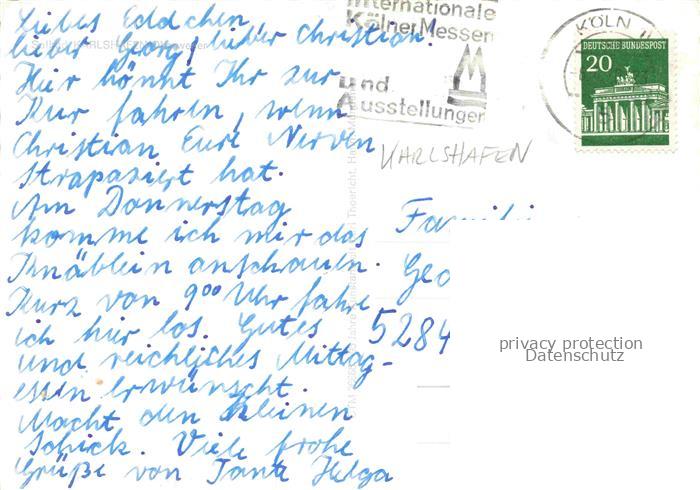 Liebes Eddchen,
lieber Georg, lieber Christian.
Hier könnt Ihr zur
Kur fahren, wenn
Christian Eure Nerven
strapaziert hat.
Am Donnerstag
komme ich mir das
Knäblein anschauen.
Kurz von 9⁰⁰ Uhr fahre
ich hier los. Gutes
und reichliches Mittag-
essen erwünscht.
Macht den Kleinen
schick. Viele frohe
Grüße von Tante Helga
Internationale
Kölner Messen
und
Ausstellungen
KÖLN
DEUTSCHE BUNDESPOST
20
KARLSHAFEN
Famili
Geo
5284
privacy protection
Datenschutz